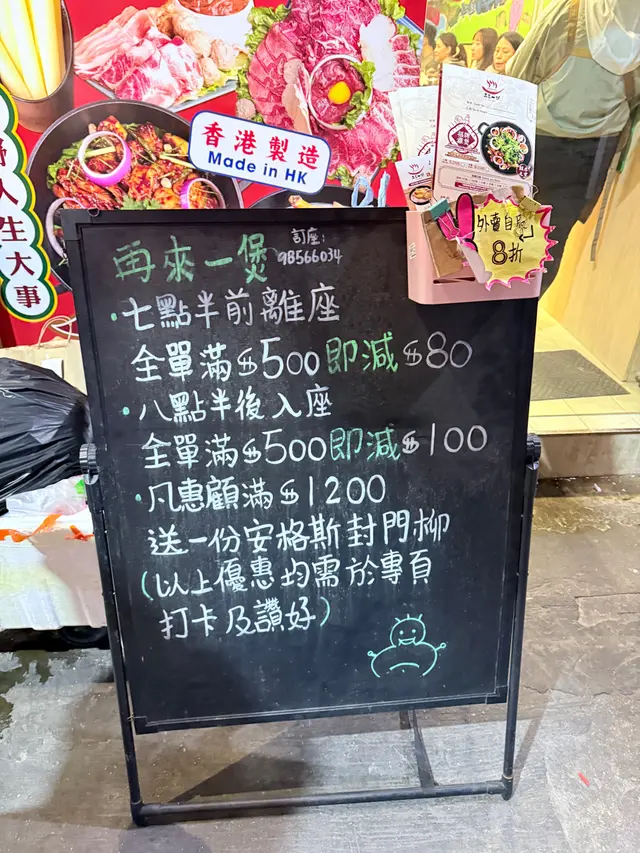 香港製造
Made in HK
人生大事
外賣自取
8折
再來一煲
訂座:
98566034
·七點半前離座
全單滿$500即減$80
·八點半後入座
全單滿$500即減$100
·凡惠顧滿$1200
送一份安格斯封門柳
(以上優惠均需於專頁
打卡及讚好)